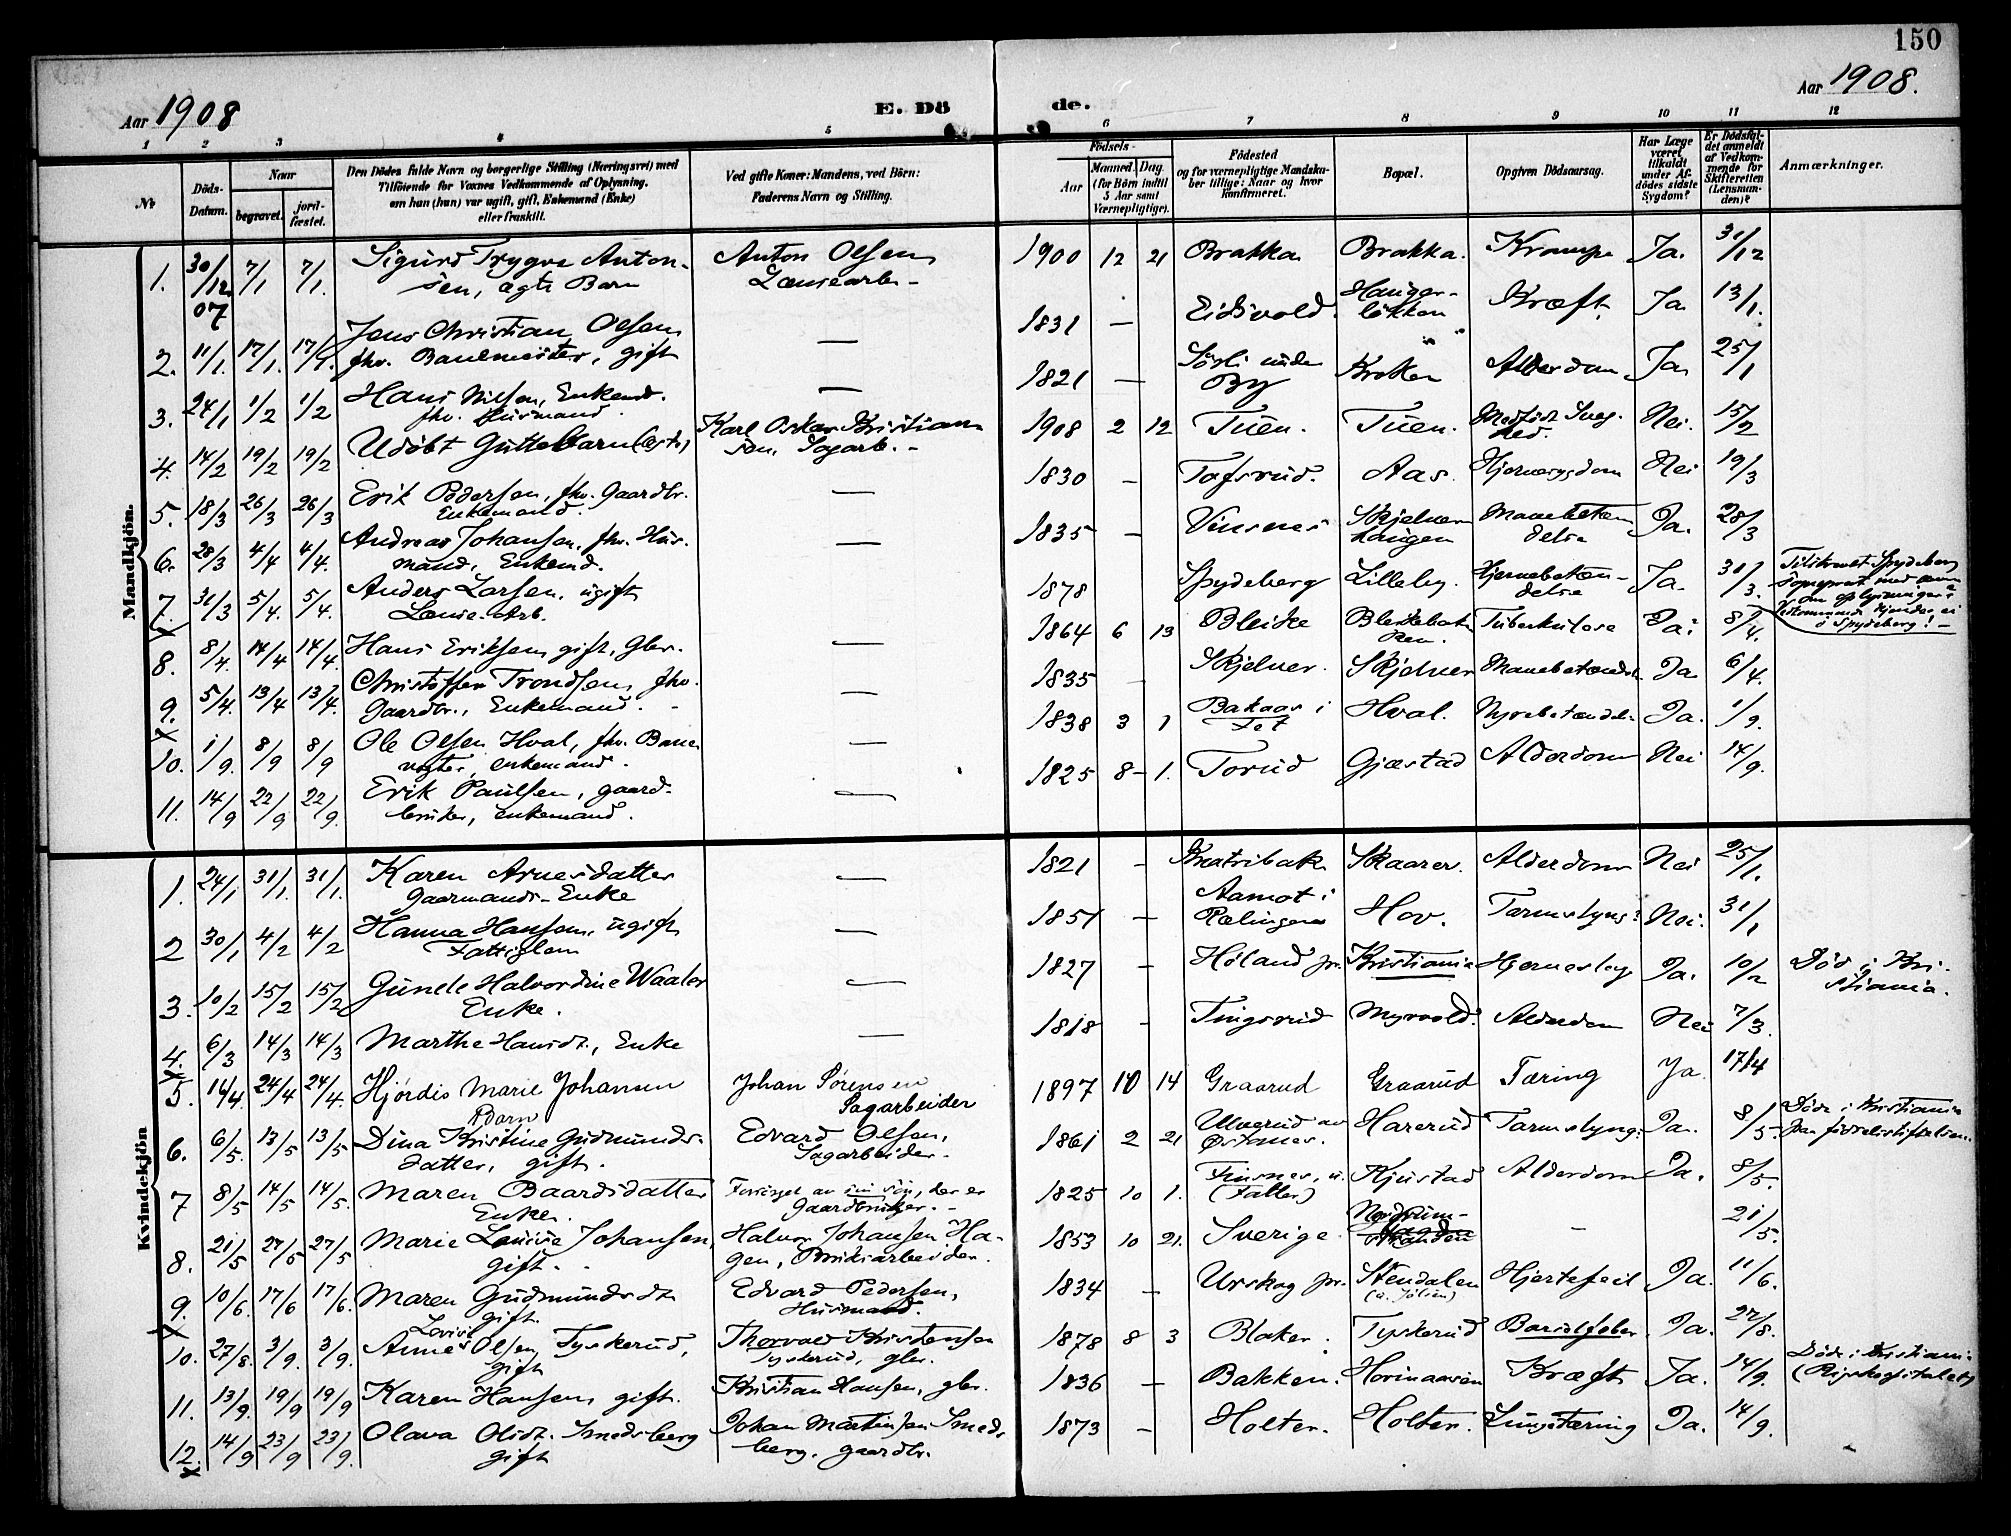 150
Aar 1908
E. Dö
de.
Aar 1908.
1 2 3 4 5 6 7 8 9 10 11 12
Nr.
Döds-Datum.
Naar
begravet.
jordfæstet.
Den Dödes fulde Navn og borgerlige Stilling (Næringsvei) med
Tilföiende for Voxnes Vedkommende af Oplysning,
om han (hun) var ugift, gift, Enkemand (Enke)
eller fraskilt.
Ved gifte Koner: Mandens, ved Börn:
Faderens Navn og Stilling.
Födsels-
Aar
Maaned. Dag.
(for Börn indtil
5 Aar samt
Værnepligtige).
Födested
og for værnepligtige Mandskaber tillige: Naar og hvor
konfirmeret.
Bopæl.
Opgiven Dödsaarsag.
Har Læge
været
tilkaldt
under Afdödes sidste
Sygdom?
Er Dödsfaldet anmeldt
af Vedkommende for
Skifteretten
(Lensmanden)?
Anmærkninger.
Mandkjön.
1. 30/12 07 7/1 7/1. Sigurd Trygve Antonsen, ægte Barn Anton Olsen Lænsearb- 1900 12 21 Brakka Brakka. Krampe Ja. 31/12
2. 11/1. 17/1. 17/1. Jens Christian Olsen fhv. Banemester, gift — 1831 — Eidsvold. Haugerløkken Kræft Ja 13/1.
3. 24/1 1/2 1/2 Hans Nilsen, Enkemd. fhv. Husmand. — 1821 — Sørli under By Kroken Alderdom Ja 25/1
4. 14/2 19/2 19/2 Udøbt Guttebarn (ægte) Karl Oskar Kristiansen, Sagarb.- 1908 2 12 Tuen. Tuen. Medfødt Svaghed. Nei. 15/2
5. 18/3 26/3 26/3 Erik Pedersen, fhv. Gaardbr. Enkemand. — 1830 — Tofsrud. Aas. Hjernesygdom Nei 19/3
6. 28/3 4/4 4/4. Andreas Johansen, fhv. Husmand, Enkemd. — 1835 — Vensnes Skjelverhaugen Mavebetændelse Ja. 28/3
7. 31/3 5/4. 5/4. Anders Larsen, ugift Lænse-Arb. 1878 Spydeberg Lilleby. Hjernebetændelse Ja. 31/3. Spydeberg!-
8. 8/4. 14/4 14/4. Hans Eriksen, gift, Gbr. — 1864 6 13 Bleike Tuberkulose Ja. 8/4.
9. 5/4. 13/4 13/4. Christoffer Trondsen, fhv. Gaardbr., Enkemand. — 1835 — Skjelver. Skjelver Mavebetændelse Ja 6/4.
10. 1/9. 8/9 8/9 Ole Olsen Hval, fhv. Banevogter, enkemand. — 1838 3 1 Bakaas i Fet Hval. Nyrebetændels. Ja. 1/9.
11. 14/9 22/9 22/9. Erik Paulsen, gaardbruker, enkemand. — 1825 8- 1. Torud Gjæstad Alderdom Nei 14/9.
Kvindekjön
1. 24/1 31/1. 31/1. Karen Arnesdatter Gaarmands-Enke — 1821 - Skaarer. Alderdom Nei 25/1.
2 30/1 4/2 4/2 Hanna Hansen, ugift Fattiglem — 1851 — Aamot i Rælingen Hov. Nei. 31/1
3. 10/2 15/2 15/2 Gunele Halvordine Waaler Enke. — 1827 - Høland pr. Kristiania Ja. 10/2 Død i Kristiania.
4. 6/3 14/3 14/3 Marthe Hansdt., Enke — 1818 - Tingsrud Myrvold. Alderdom Nei 7/3.
5. 16/4. 24/4 24/4. Hjørdis Marie Johansen Barn Johan Sørensen Sagarbeider 1897 10 14 Graarud Graarud Tæring Ja 17/4
6. 6/5. 13/5 13/5 Dina Kristine Gudmundsdatter, gift. Edvard Olsen, Sagarbeider. 1861 2 21 Ulverud av Østanes. Harerud Ja. 8/5. Døde i Kristiania
7 8/5 14/5 14/5. Maren Baardsdatter Enke. Forsørget av sin søn, der er Gaardbruker.- 1825 10 1. (Fatter) Kjustad Alderdom Ja. 8/5.
8. 21/5 27/5 27/5 Marie Lovise Johansen, gift. Halvor Johansen Hagen, Bruksarbeider. 1853 10 21. Sverige. - 21/5.
9. 10/6. 17/6 17/6. Maren Gudmundsdt. gift. Edvard Pedersen, Husmand. 1834 — Urskog pr. Stendalen Hjertefeil Ja. 11/6.
10. 27/8. 3/9. 3/9. Anne Lovise Olsen, Tyskerud, gift Thorvald Kristensen Tyskerud, gbr. 1878 8 3 Blaker. Tyskerud Barselfeber. Ja. 27/8.
11. 13/9. 19/9 19/9 Karen Hansen, gift. Kristian Hansen, gbr. 1836 — Bakken. Kræft Ja. 14/9. Døde i Kristiania (Rigshospitalet)
12. 14/9 23/9 23/9. Olava Olsdt. Smedsberg gift Johan Martinsen Smedsberg, gaardbr. 1873 — Holter. Holter. Lungetæring Ja. 14/9.